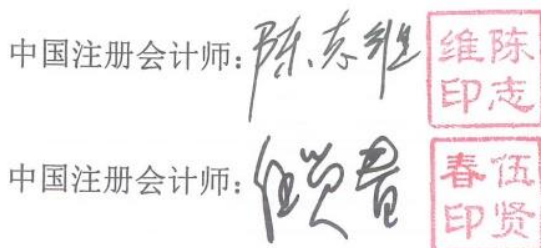 中国注册会计师：陈志维
陈志维印
中国注册会计师：伍贤春
伍贤春印